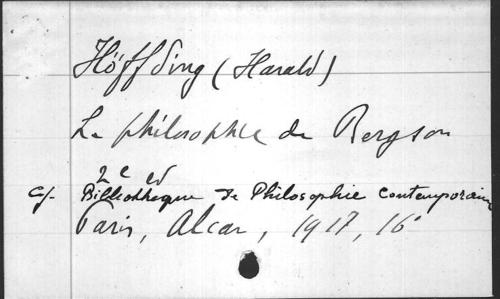 Höffding (Harald)
La philosophie de Bergson
2e ed
cf. Bibliothèque de Philosophie Contemporaine
Paris, Alcan, 1917, 16°